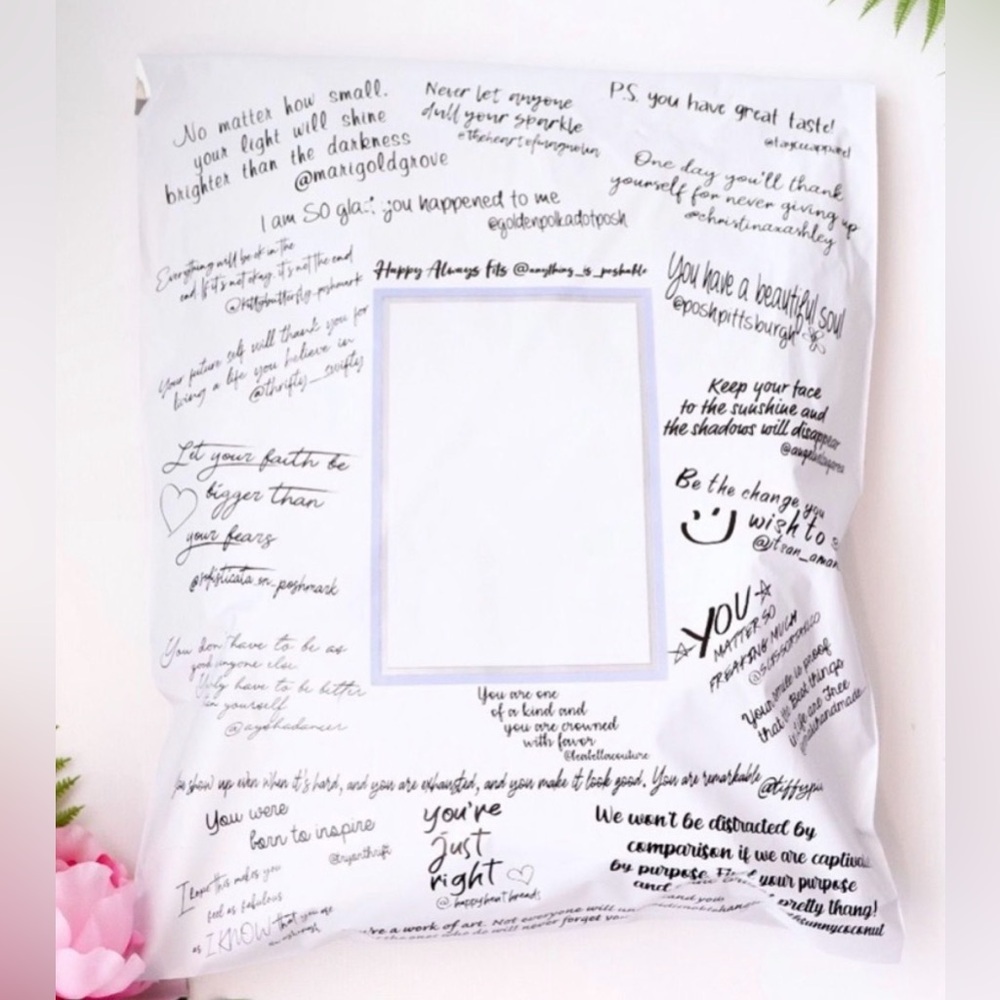 No matter how small.
your light will shine
brighter than the darkness
@marigoldgrove
Never let anyone
dull your sparkle
@theheartofmagnolia
P.S. you have great taste!
One day you'll thank
yourself for never giving up
@christinaxashley
I am SO glad you happened to me
@goldenpolkadotposh
Everything will be ok in the
end. If it's not okay, it's not the end
@kittybutterfly_poshmark
Happy Always Fits @anything_is_poshable
You have a beautiful soul
@poshpittsburgh
Your future self will thank you for
living a life you believe in
@thrifty__swifty
Keep your face
to the sunshine and
the shadows will disappear
Let your faith be
bigger than
your fears
@sofisticata_on_poshmark
Be the change you
wish to
YOU
MATTER SO
FREAKING MUCH
Your smile is proof
that the Best things
in life are Free
You don't have to be as
good anyone else.
Only have to be better
than yourself
@ayohadancer
You are one
of a kind and
you are crowned
with favor
@leabellacouture
You show up even when it's hard, and you are exhausted, and you make it look good. You are remarkable
You were
born to inspire
@tryanthrift
you're
just
right
@happyheartbreads
We won't be distracted by
comparison if we are
by purpose. your purpose
and pretty thang!
I hope this makes you
feel as fabulous
as I KNOW that you are
a work of art. Not everyone will
who do will never forget you